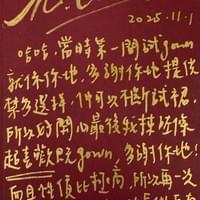 2025.11.1
哈哈,當時第一間試gown
就係你地,多謝你地提供
咁多選擇,仲可以不斷試裙,
所以好開心最後我揀到條
超喜歡既gown,多謝你地!
而且性價比極高,所以再一次